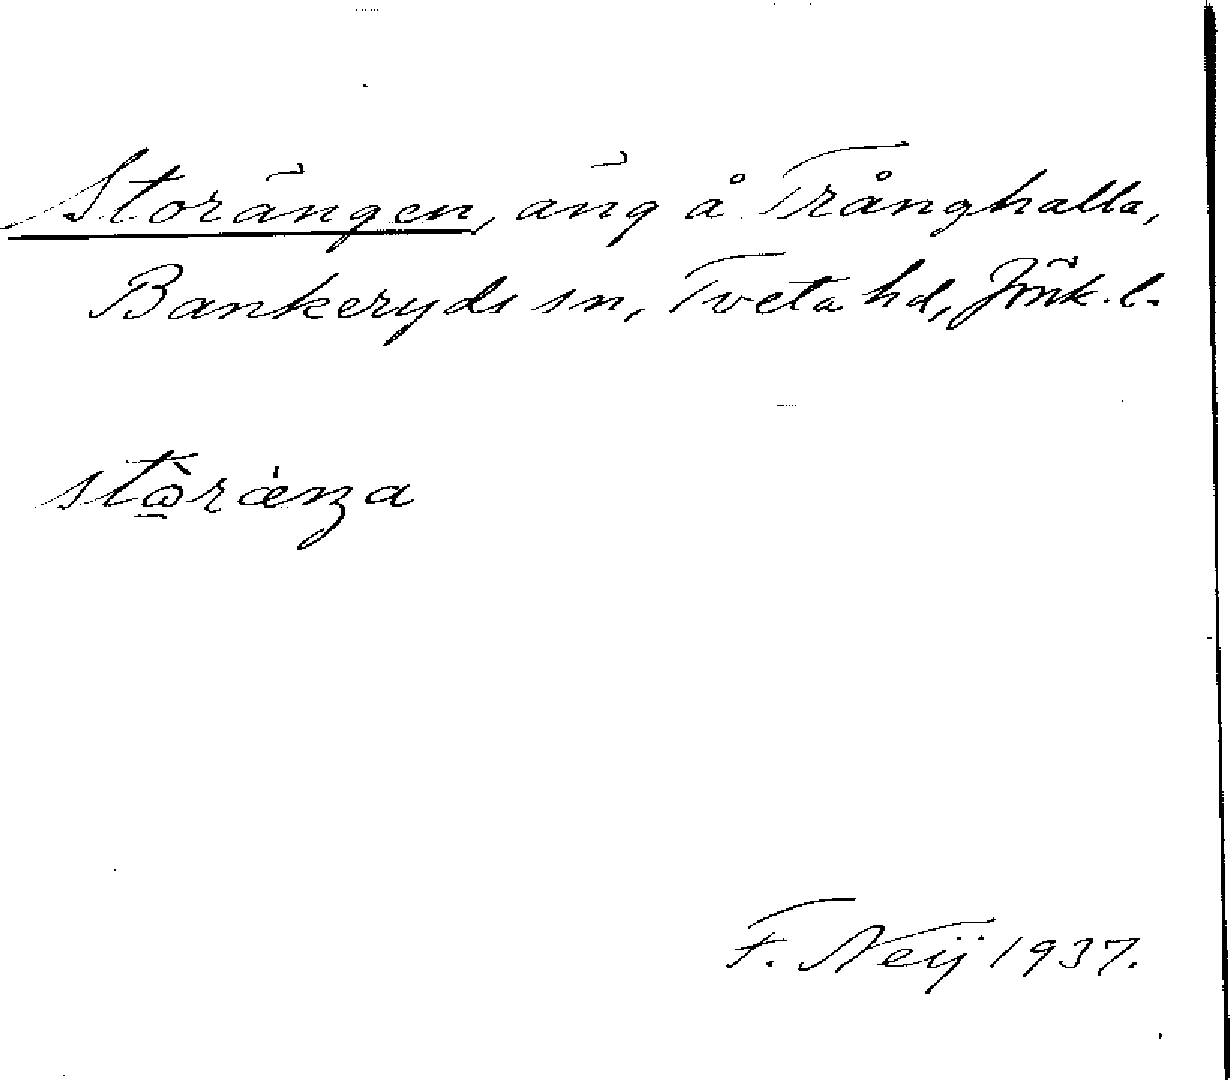 Storängen, äng å Trånghalla,
Bankeryds sn, Tveta hd, Jönk. l.
stòrǽŋa
F. Neij 1937.